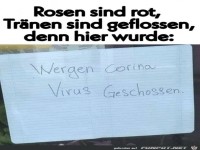 Rosen sind rot,
Tränen sind geflossen,
denn hier wurde:
Wergen Corina
Virus Geschossen.